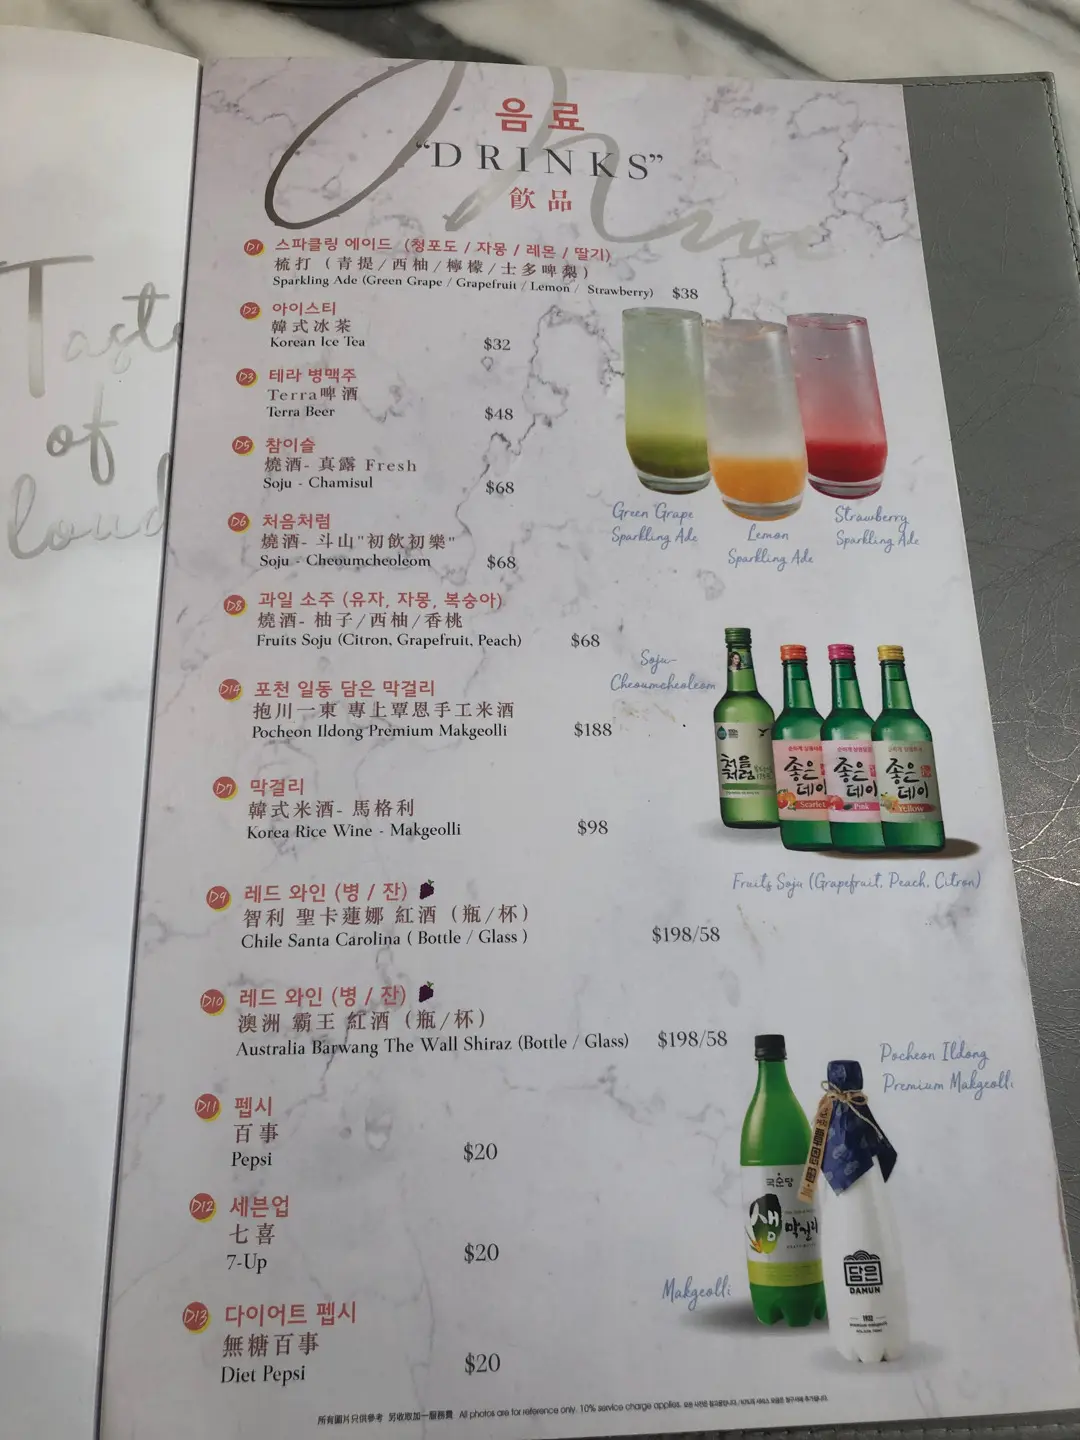 Taste
of
음료
"DRINKS"
飲品
D1 스파클링 에이드 (청포도 / 자몽 / 레몬 / 딸기)
梳打 (青提/西柚/檸檬/士多啤梨)
Sparkling Ade (Green Grape / Grapefruit / Lemon / Strawberry) $38
D2 아이스티
韓式冰茶
Korean Ice Tea $32
D3 테라 병맥주
Terra啤酒
Terra Beer $48
D5 참이슬
燒酒- 真露 Fresh
Soju - Chamisul $68
D6 처음처럼
燒酒- 斗山"初飲初樂"
Soju - Cheoumcheoleom $68
D8 과일 소주 (유자, 자몽, 복숭아)
燒酒- 柚子/西柚/香桃
Fruits Soju (Citron, Grapefruit, Peach) $68
D14 포천 일동 담은 막걸리
抱川一東 專上覃恩手工米酒
Pocheon Ildong Premium Makgeolli $188
D7 막걸리
韓式米酒- 馬格利
Korea Rice Wine - Makgeolli $98
D9 레드 와인 (병 / 잔)
智利 聖卡蓮娜 紅酒 (瓶/杯)
Chile Santa Carolina ( Bottle / Glass ) $198/58
D10 레드 와인 (병 / 잔)
澳洲 霸王 紅酒 (瓶/杯)
Australia Barwang The Wall Shiraz (Bottle / Glass) $198/58
D11 펩시
百事
Pepsi $20
D12 세븐업
七喜
7-Up $20
D13 다이어트 펩시
無糖百事
Diet Pepsi $20
Green Grape
Sparkling Ade
Lemon
Sparkling Ade
Strawberry
Sparkling Ade
Soju-
Cheoumcheoleom
처음
처럼
좋은
데이
Scarlet
좋은
데이
Pink
좋은
데이
Yellow
Fruits Soju (Grapefruit, Peach, Citron)
Pocheon Ildong
Premium Makgeolli
국순당
생
막걸리
담은
DAMUN
Makgeolli
所有圖片只供參考 另收取加一服務費 All photos are for reference only. 10% service charge applies.